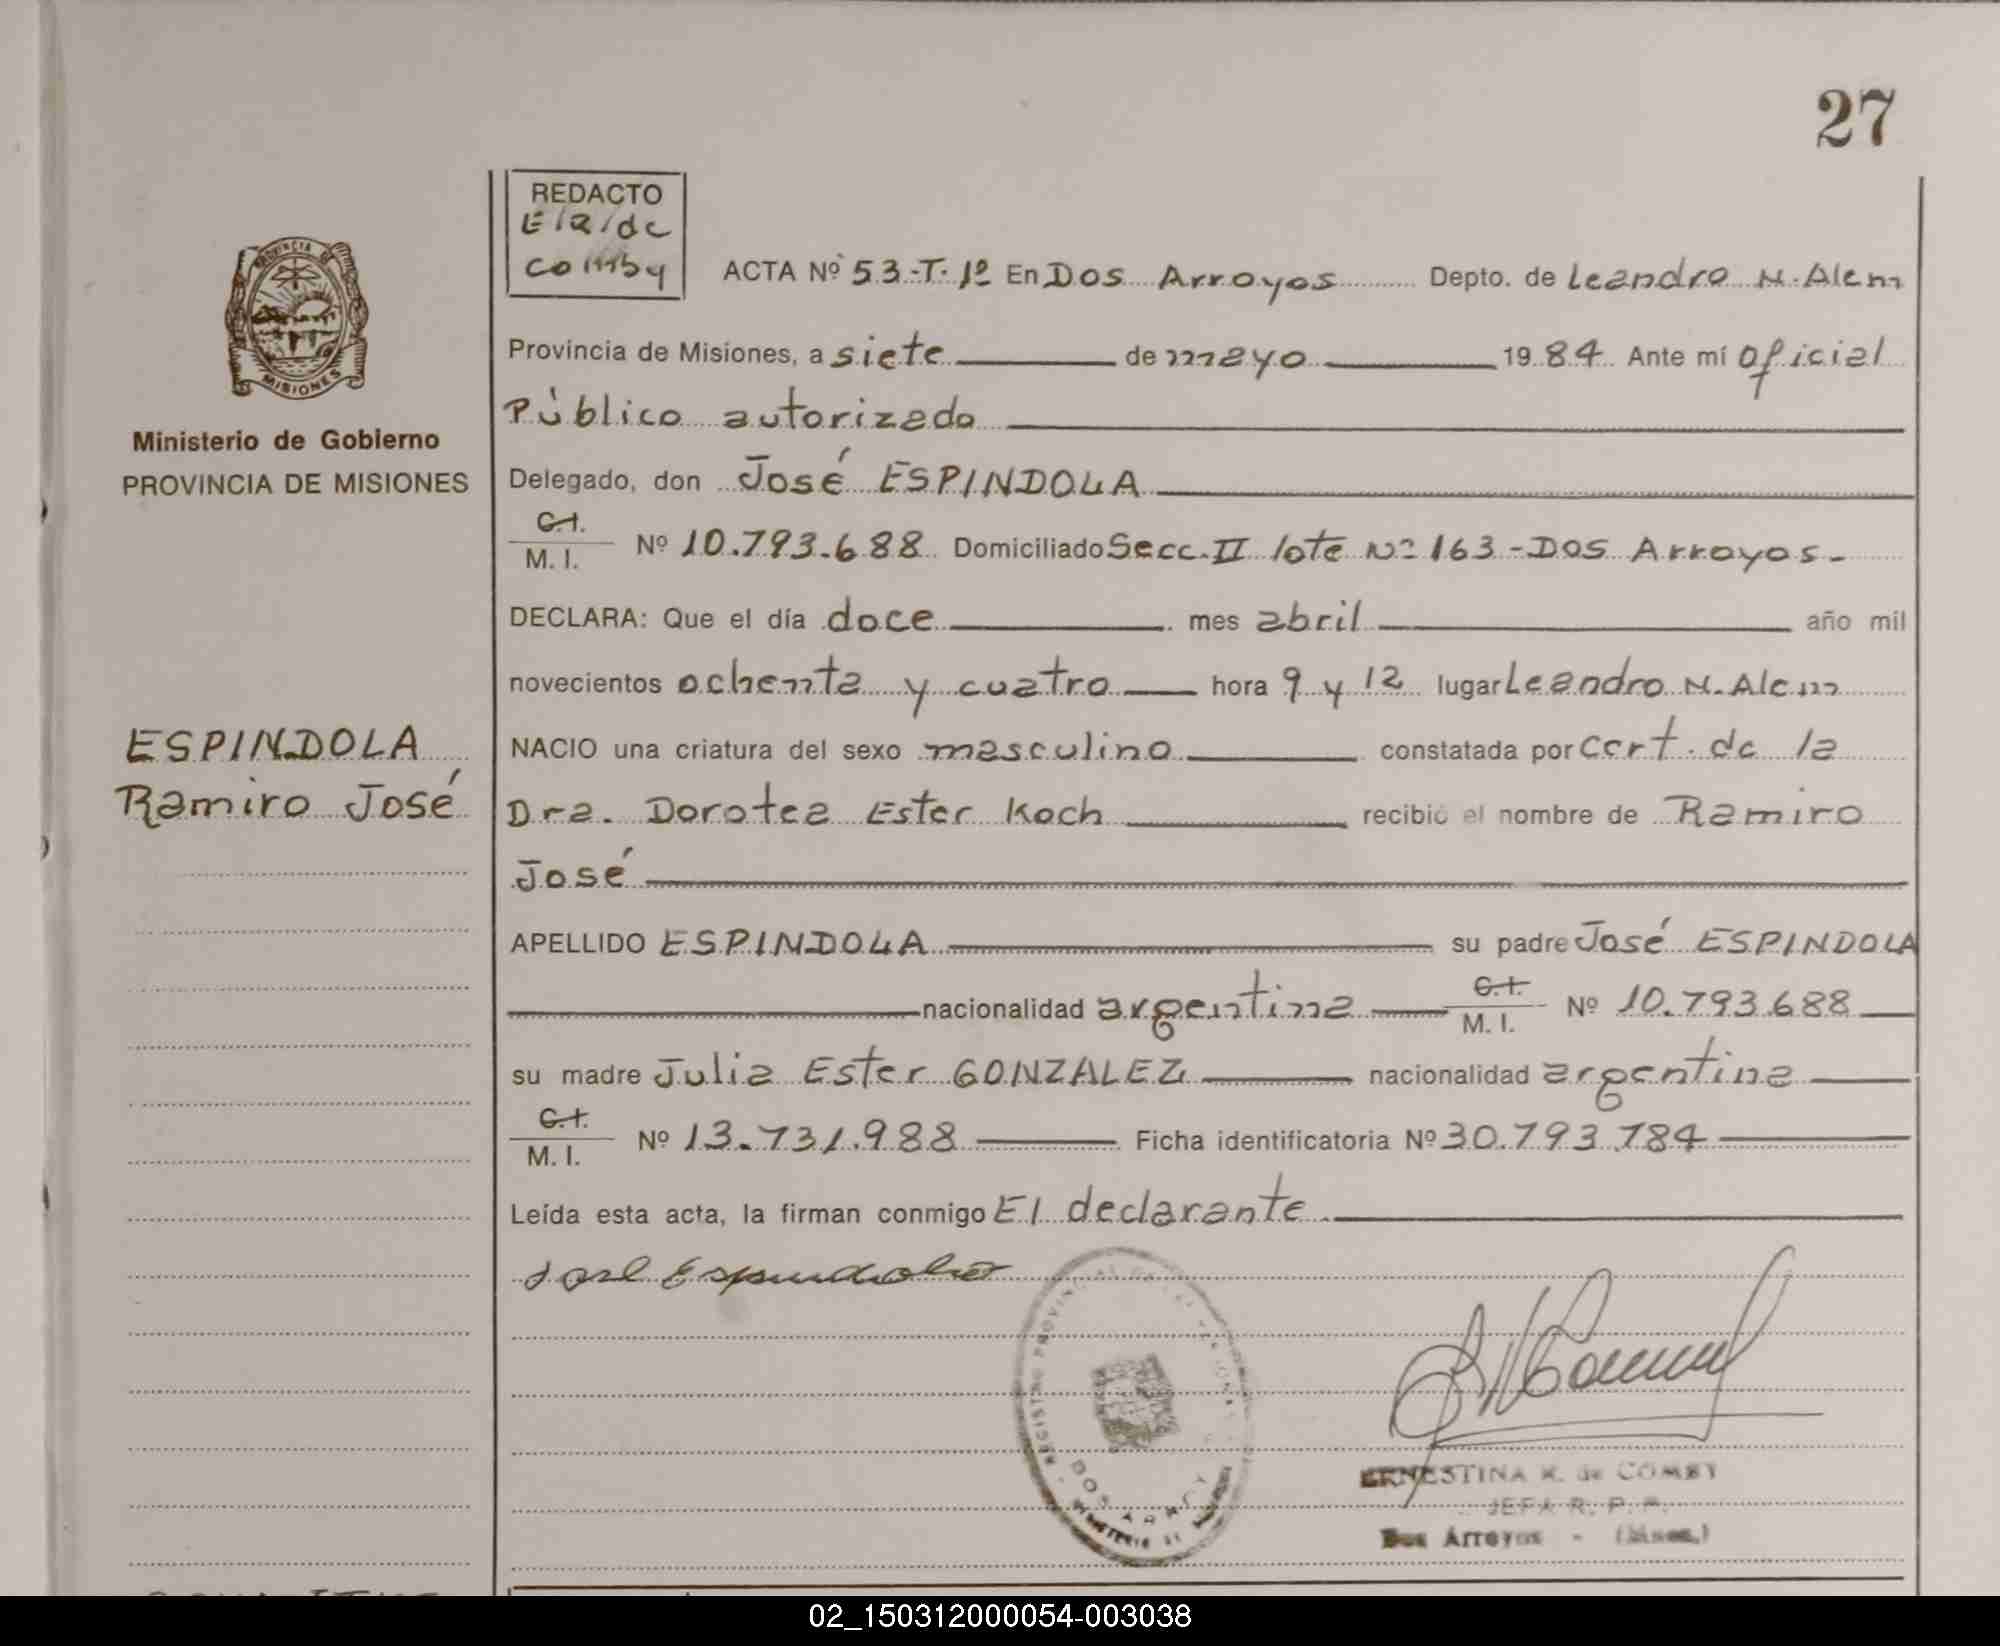 27
REDACTO
E/R/de
Comby
ACTA Nº 53.-T. 1º En Dos Arroyos Depto. de Leandro N. Alem
Provincia de Misiones, a siete de mayo 1984 Ante mí oficial
Público autorizado
PROVINCIA DE
MISIONES
Ministerio de Gobierno
PROVINCIA DE MISIONES
Delegado, don José ESPINDOLA
C.I.
M. I. Nº 10.793.688 Domiciliado Secc. II lote Nº 163 - Dos Arroyos.-
DECLARA: Que el día doce mes abril año mil
novecientos ochenta y cuatro hora 9 y 12 lugar Leandro N. Alem
ESPINDOLA
Ramiro José
NACIO una criatura del sexo masculino constatada por cert. de la
Dra. Dorotea Ester Koch recibió el nombre de Ramiro
José
APELLIDO ESPINDOLA su padre José ESPINDOLA
nacionalidad argentina C.I.
M. I. Nº 10.793.688
su madre Julia Ester GONZALEZ nacionalidad argentina
C.I.
M. I. Nº 13.731.988 Ficha identificatoria Nº 30.793.784
Leída esta acta, la firman conmigo El declarante.
José Espindola
REGISTRO PROVINCIAL
DOS ARROY
MINISTERIO DE
ERNESTINA K. de COMBY
JEFA R. P. P.
Dos Arroyos - (Mnes.)
02_150312000054-003038